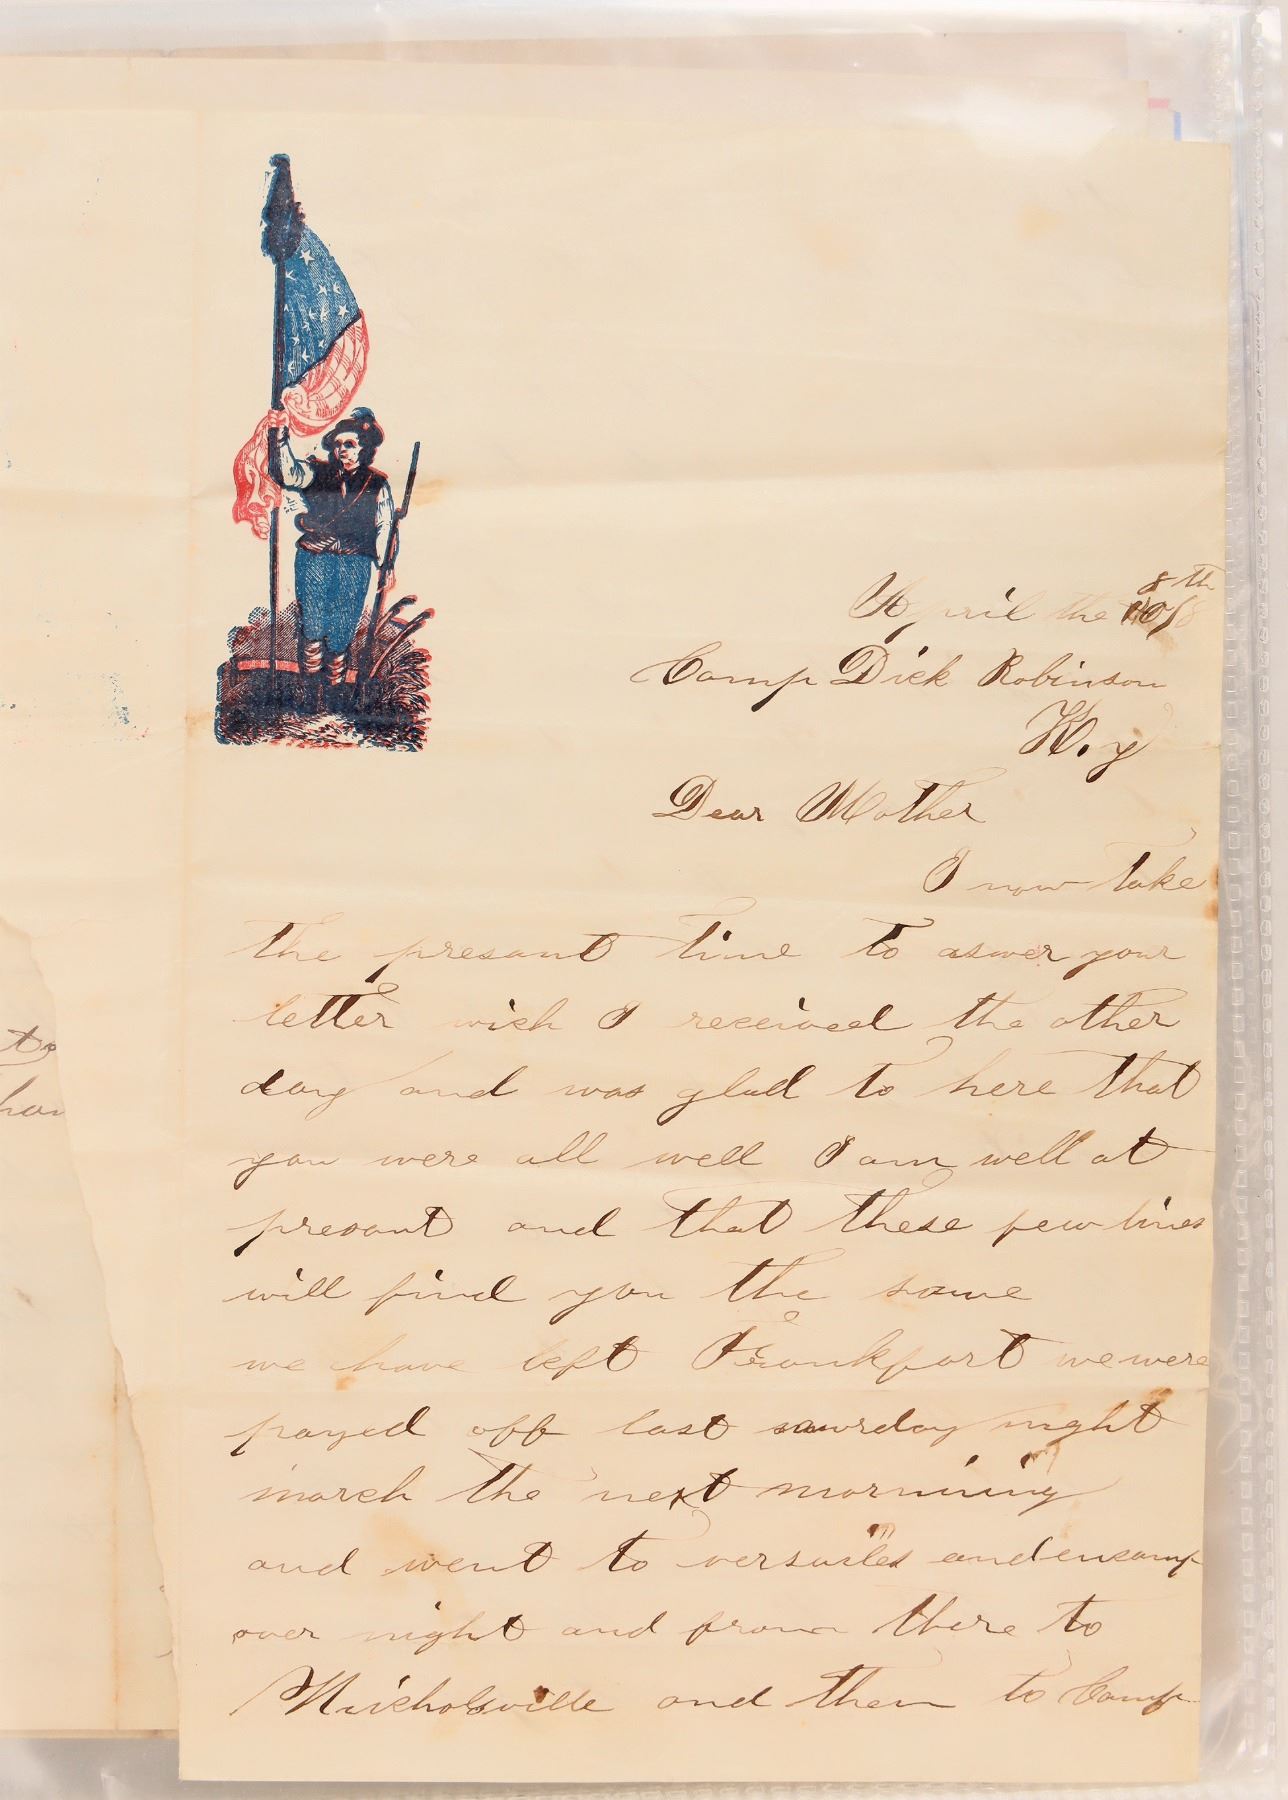 April the 8th
Camp Dick Robinson
K.y
Dear Mother
I now take
the presant time to aswer your
letter wich I received the other
day and was glad to here that
you were all well I am well at
presant and that these few lines
will find you the same
we have left Frankfort we were
payed off last saurday night
march the next morning
and went to versailes and encamp
over night and from there to
Nicholsville and then to Camp
to